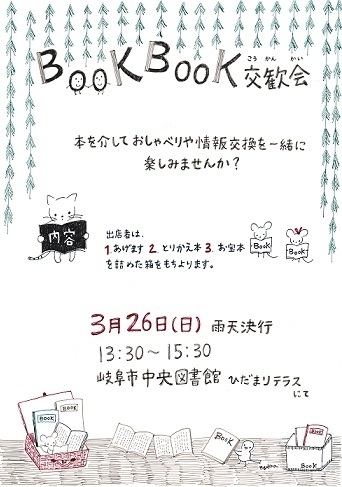 BooK BooK 交歓会
こう かん かい
本を介して おしゃべりや情報交換を一緒に
楽しみませんか？
内容
出店者は、
1.あげます 2.とりかえ本 3.お宝本
を詰めた箱をもちよります。
BooK
BooK
3月26日(日) 雨天決行
13:30～15:30
岐阜市中央図書館 ひだまりテラス
にて
BooK
BooK
BooK
BOOK